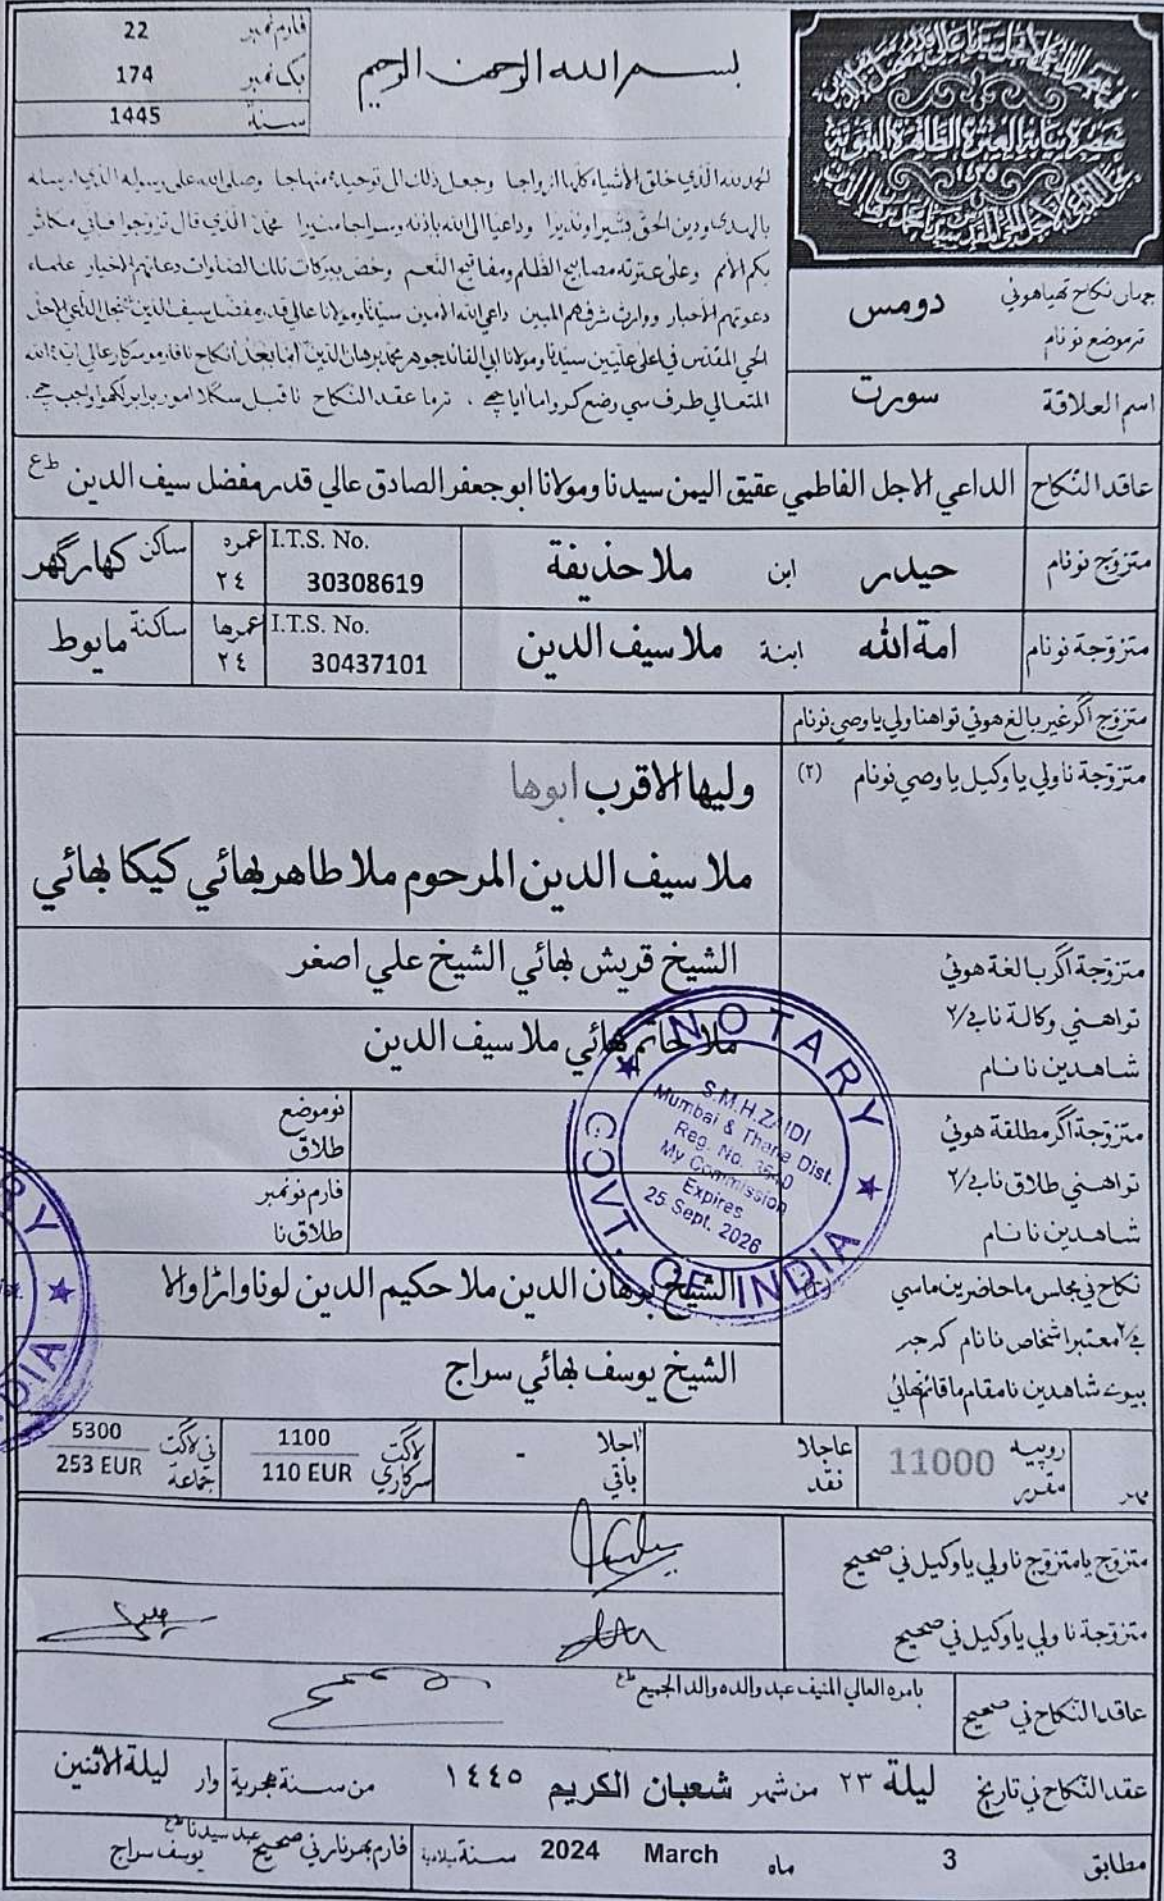 فارم نمبر 22
بک نمبر 174
سنة 1445
بسم الله الرحمن الرحيم
حضرة نيابة العترة الطاهرة النبوية
الحمد لله الذي خلق الاشياء كلها ازواجا وجعل ذلك الى توحيده منهاجا وصلى الله على رسوله الذي ارسله
بالهدى ودين الحق بشيرا ونذيرا وداعيا الى الله باذنه وسراجا منيرا محمد الذي قال تزوجوا فاني مكاثر
بكم الأمم وعلى عترته مصابيح الظلم ومفاتيح النعم وخص ببركات تلك الصلوات دعاتهم الاخيار علماء
دعوتهم الاحبار ووارث شرفهم المبين داعي الله الأمين سيدنا ومولانا عالي قدر مفضل سيف الدين نجل الداعي الاجل
الحي المقدس في اعلى عليين سيدنا ومولانا ابي القائد جوهر محمد برهان الدين اما بعد انكاح نا فارمو سركار عالي ايده الله
المتعالي طرف سي وضع كرواما ايا چهے ، ترما عقد النكاح نا قبل سگلا امور برابر لكهوا واجب چهے.
جهاں نكاح تهيا هوئي
تر موضع نو نام
دومس
اسم العلاقة سورت
عاقد النكاح الداعي الاجل الفاطمي عقيق اليمن سيدنا ومولانا ابو جعفر الصادق عالي قدر مفضل سيف الدين طع
متزوج نو نام حيدر ابن ملا حذيفة I.T.S. No. 30308619 عمره ٢٤ ساكن كهارگهر
متزوجة نو نام امة الله ابنة ملا سيف الدين I.T.S. No. 30437101 عمرها ٢٤ ساكنة مايوط
متزوج اگر غير بالغ هوئي تو اهنا ولي يا وصي نو نام
متزوجة نا ولي يا وكيل يا وصي نو نام (٢) وليها الاقرب ابوها
ملا سيف الدين المرحوم ملا طاهر بهائي كيكا بهائي
متزوجة اگر بالغة هوئي
تو اهني وكالة نا بے/٢
شاهدين نا نام
الشيخ قريش بهائي الشيخ علي اصغر
ملا حاتم بهائي ملا سيف الدين
NOTARY
GOVT. OF INDIA
S.M.H.ZAIDI
Mumbai & Thane Dist.
Reg. No.
My Commission
Expires
25 Sept. 2026
متزوجة اگر مطلقة هوئي
تو اهني طلاق نا بے/٢
شاهدين نا نام
نو موضع
طلاق
فارم نو نمبر
طلاق نا
نكاح ني مجلس ما حاضرين ما سي
بے/٢ معتبر اشخاص نا نام كر جر
بيوے شاهدين نا مقام ما قائم تهائي
الشيخ برهان الدين ملا حكيم الدين لوناواڑا والا
الشيخ يوسف بهائي سراج
مهر روپيه مقرر 11000
عاجلا نقد
اجلا باقي -
لاگت سركاري 1100 110 EUR
ني لاگت جماعة 5300 253 EUR
متزوج يا متزوج نا ولي يا وكيل ني صحيح
متزوجة نا ولي يا وكيل ني صحيح
عاقد النكاح ني صحيح بامره العالي المنيف عبده والده والد الجميع طع
عقد النكاح ني تاريخ ليلة ٢٣ من شهر شعبان الكريم ١٤٤٥ من سنة هجرية وار ليلة الاثنين
مطابق 3 ماه March 2024 سنة ميلادية فارم بهرنار ني صحيح عبد سيدنا طع
يوسف سراج